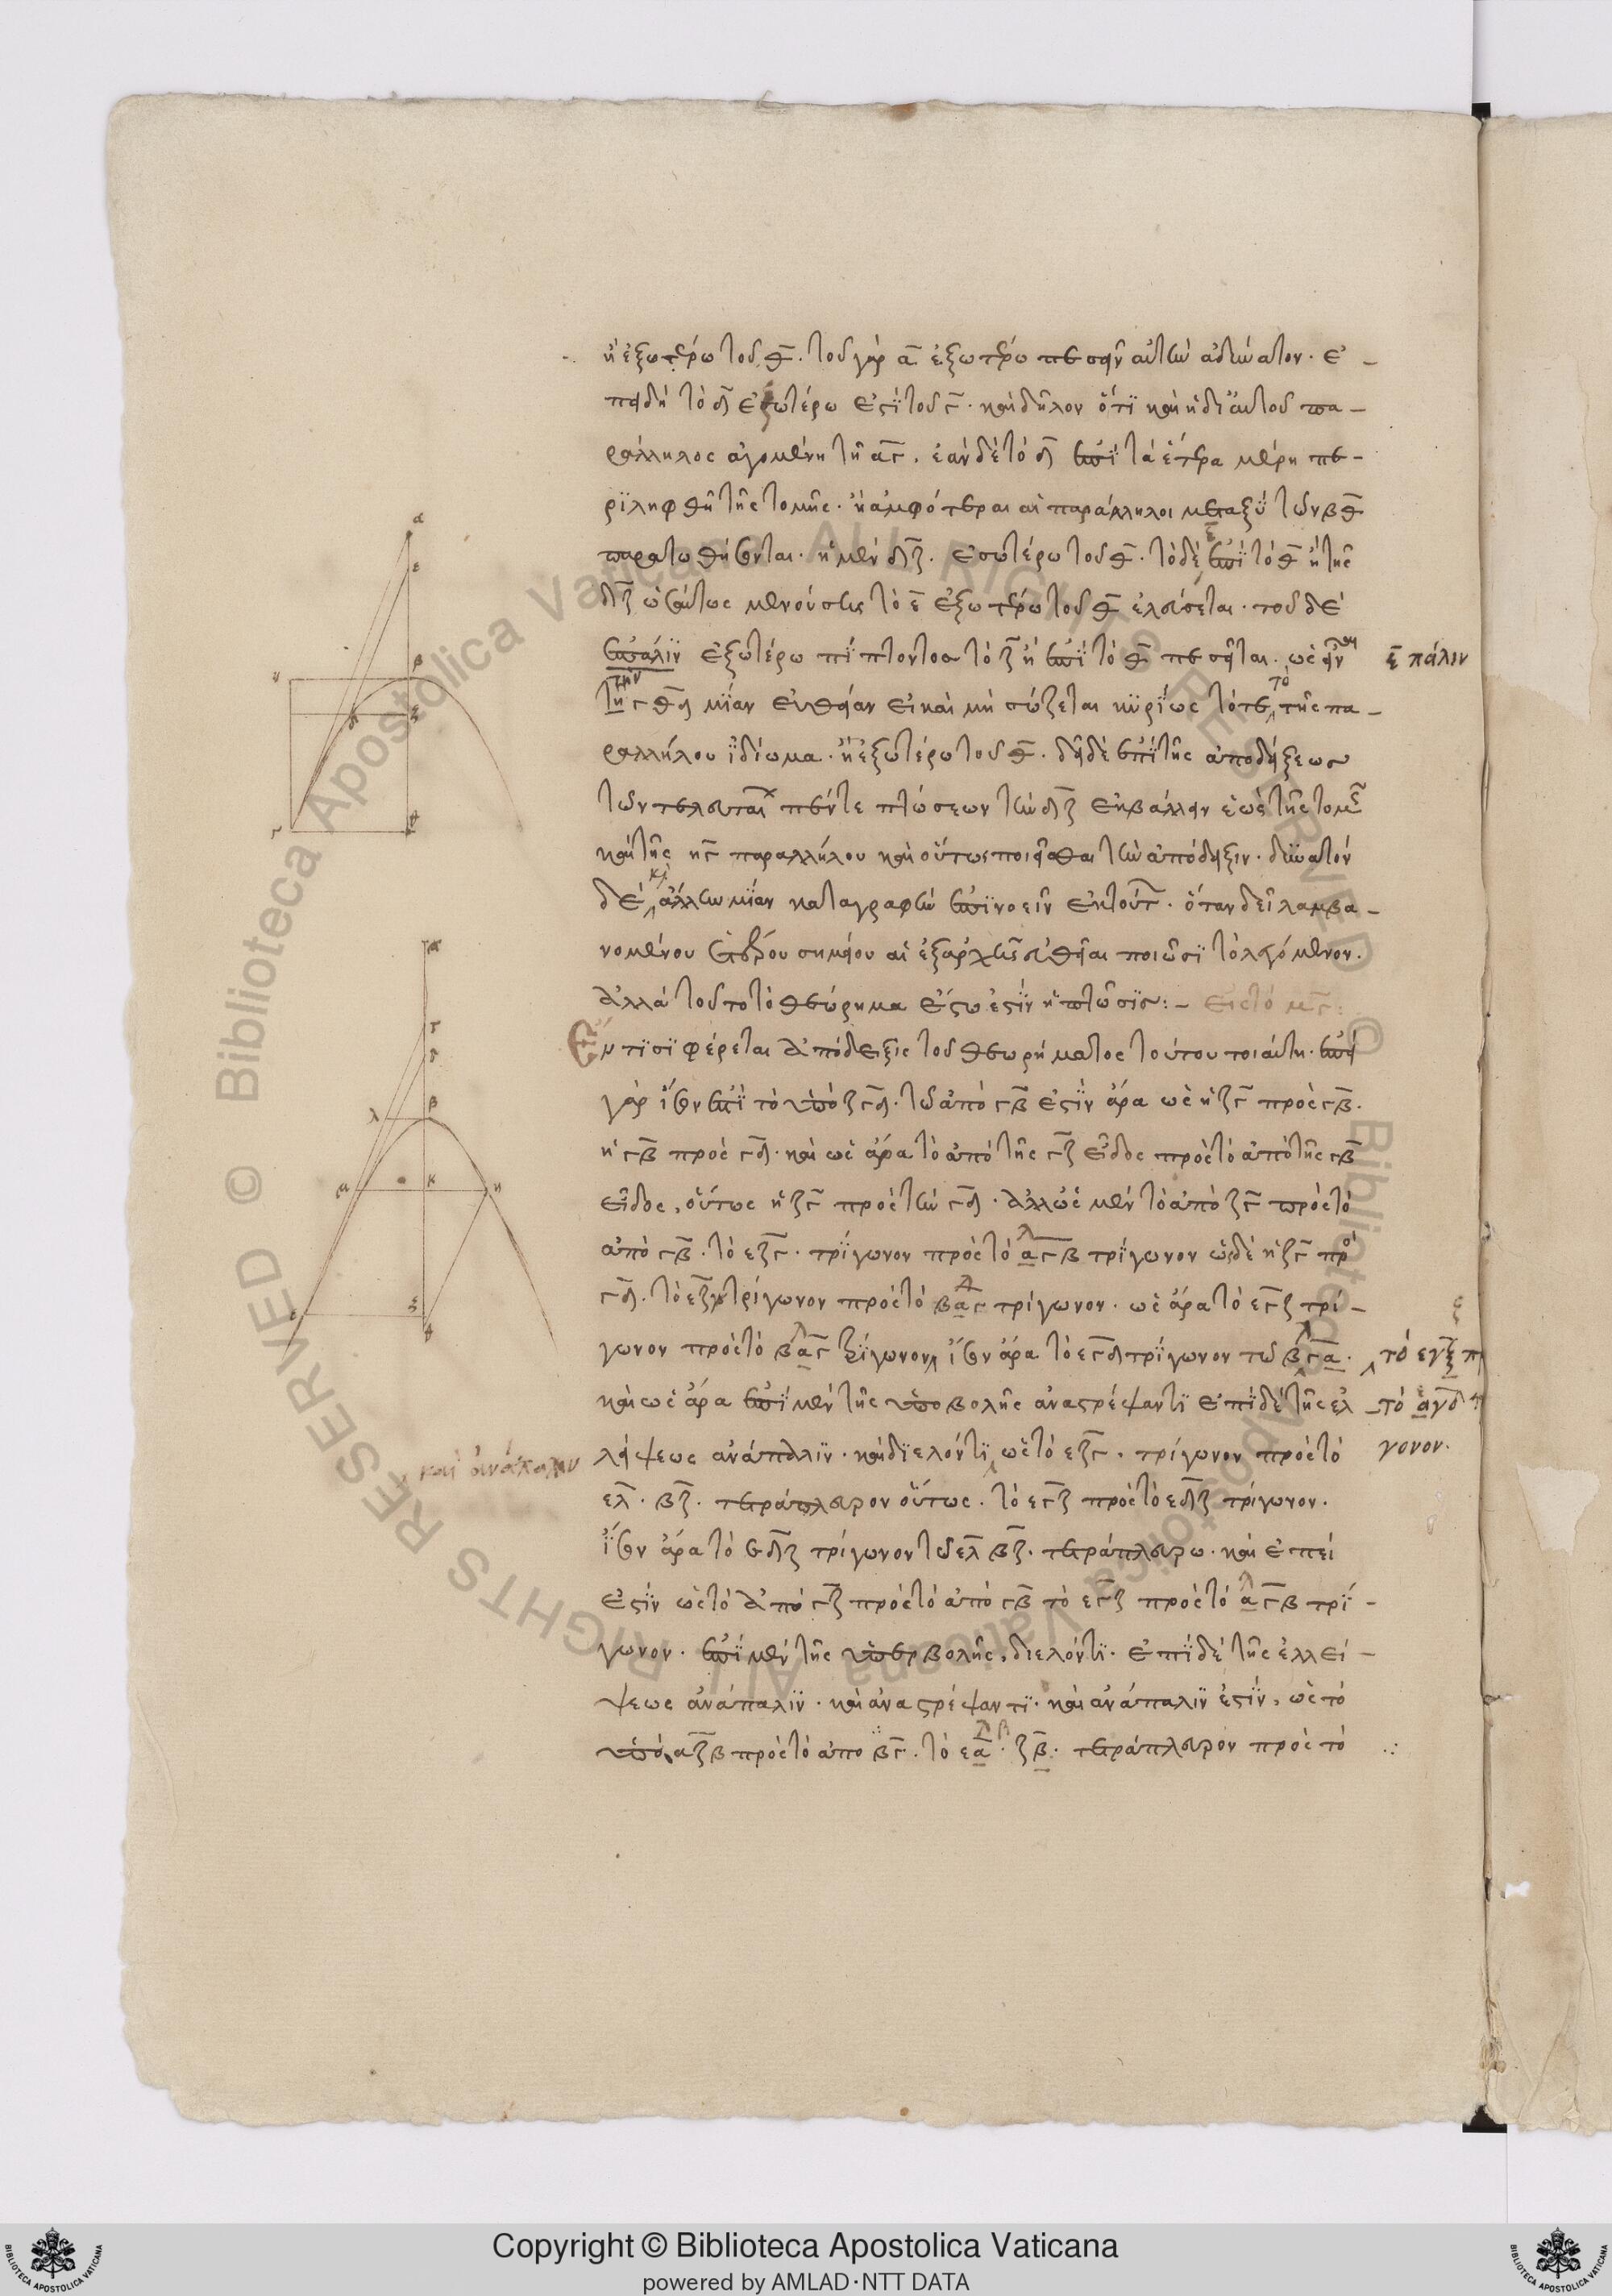 ἢ ἐξωτέρω τοῦ θ. τοῦ γὰρ α ἐξωτέρω πεσεῖν αὐτὴν ἀδύνατον. ἐ-
πειδὴ τὸ δ ἐξωτέρω ἐστὶ τοῦ γ. καὶ δῆλον ὅτι καὶ ἡ δι αὐτοῦ πα-
ράλληλος ἀγομένη τῇ αγ. ἐὰν δὲ τὸ δ ἐπὶ τὰ ἕτερα μέρη πε-
ριληφθῇ τῆς τομῆς. ἢ ἀμφότεραι αἱ παράλληλοι μεταξὺ τῶν βθ
περατωθήσονται. ἢ ἡ μὲν δζ. ἐσωτέρω τοῦ θ. τὸ δὲ ε ἐπὶ τὸ θ ἢ τῆς
δζ ὡσαύτως μενούσης τὸ ε ἐξωτέρω τοῦ θ ἐλεύσεται. τοῦ δὲ
ἐπάλιν ἐξωτέρω πίπτοντος τὸ ζ ἢ ἐπὶ τὸ θ πεσεῖται. ὡς εἶναι
τὴν γθδ μίαν εὐθεῖαν εἰ καὶ μὴ σώζεται κυρίως τότε τὸ τῆς πα-
ραλλήλου ἰδίωμα. ἢ ἐξωτέρω τοῦ θ. δεῖ δὲ ἐπὶ τῆς ἀποδείξεως
τῶν τελευταίων πέντε πτώσεων τὴν δζ ἐκβάλλειν ἕως τῆς τομῆς
καὶ τῆς ηγ παραλλήλου καὶ οὕτως ποιεῖσθαι τὴν ἀπόδειξιν. δυνατόν
δὲ καὶ ἄλλην μίαν καταγραφὴν ἐπινοεῖν ἐκ τούτων. ὅταν δεῖ λαμβα-
νομένου ἑτέρου σημείου αἱ ἐξαρχῆς εὐθεῖαι ποιῶσι τὸ λεγόμενον.
ἀλλὰ τοῦτο τὸ θεώρημα ἔσω ἐστὶν ἢ πτῶσις:- εἰς τὸ μγ:
Ἔν τισι φέρεται ἀπόδειξις τοῦ θεωρήματος τούτου τοιαύτη. ἐπεὶ
γὰρ ἴσον ἐστὶ τὸ ὑπὸ ζγδ. τῷ ἀπὸ γβ ἐστὶν ἄρα ὡς ἡ ζγ πρὸς γβ.
ἡ γβ πρὸς γδ. καὶ ὡς ἄρα τὸ ἀπὸ τῆς γζ εἶδος πρὸς τὸ ἀπὸ τῆς γβ
εἶδος, οὕτως ἡ ζγ πρὸς τὴν γδ. ἀλλ ὡς μὲν τὸ ἀπὸ ζγ πρὸς τὸ
ἀπὸ γβ. τὸ εζγ. τρίγωνον πρὸς τὸ αγβ τρίγωνον ὡς δὲ ἡ ζγ πρὸς
γδ. τὸ εζγ τρίγωνον πρὸς τὸ βαγ τρίγωνον. ὡς ἄρα τὸ εγζ τρί-
γωνον πρὸς τὸ βαγ τρίγωνον, ἴσον ἄρα τὸ εγδ τρίγωνον τῷ βγα.
καὶ ὡς ἄρα ἐπὶ μὲν τῆς ὑποβολῆς ἀναστρέψαντι ἐπὶ δὲ τῆς ἐλ
λείψεως ἀνάπαλιν. καὶ διελόντι ὡς τὸ εζγ. τρίγωνον πρὸς τὸ
ελ. βζ. τετράπλευρον οὕτως. τὸ εγζ πρὸς τὸ εδζ τρίγωνον.
ἴσον ἄρα τὸ εδζ τρίγωνον τῷ ελ βζ. τετραπλεύρῳ. καὶ ἐπεί
ἐστιν ὡς τὸ ἀπὸ γζ πρὸς τὸ ἀπὸ γβ τὸ εγζ πρὸς τὸ αγβ τρί-
γωνον. ἐπὶ μὲν τῆς ὑπερβολῆς, διελόντι. ἐπὶ δὲ τῆς ἐλλεί-
ψεως ἀνάπαλιν. καὶ ἀναστρέψαντι. καὶ ἀνάπαλιν ἐστίν, ὡς τὸ
ὑπὸ αζβ πρὸς τὸ ἀπὸ βγ. τὸ εα. ζβ. τετράπλευρον πρὸς τὸ
ξ πάλιν
γονον.
καὶ ἀνάπαλιν
Copyright © Biblioteca Apostolica Vaticana
powered by AMLAD·NTT DATA
BIBLIOTECA APOSTOLICA VATICANA
BIBLIOTECA APOSTOLICA VATICANA
© Biblioteca Apostolica Vaticana ALL RIGHTS RESERVED
© Biblioteca Apostolica Vaticana ALL RIGHTS RESERVED